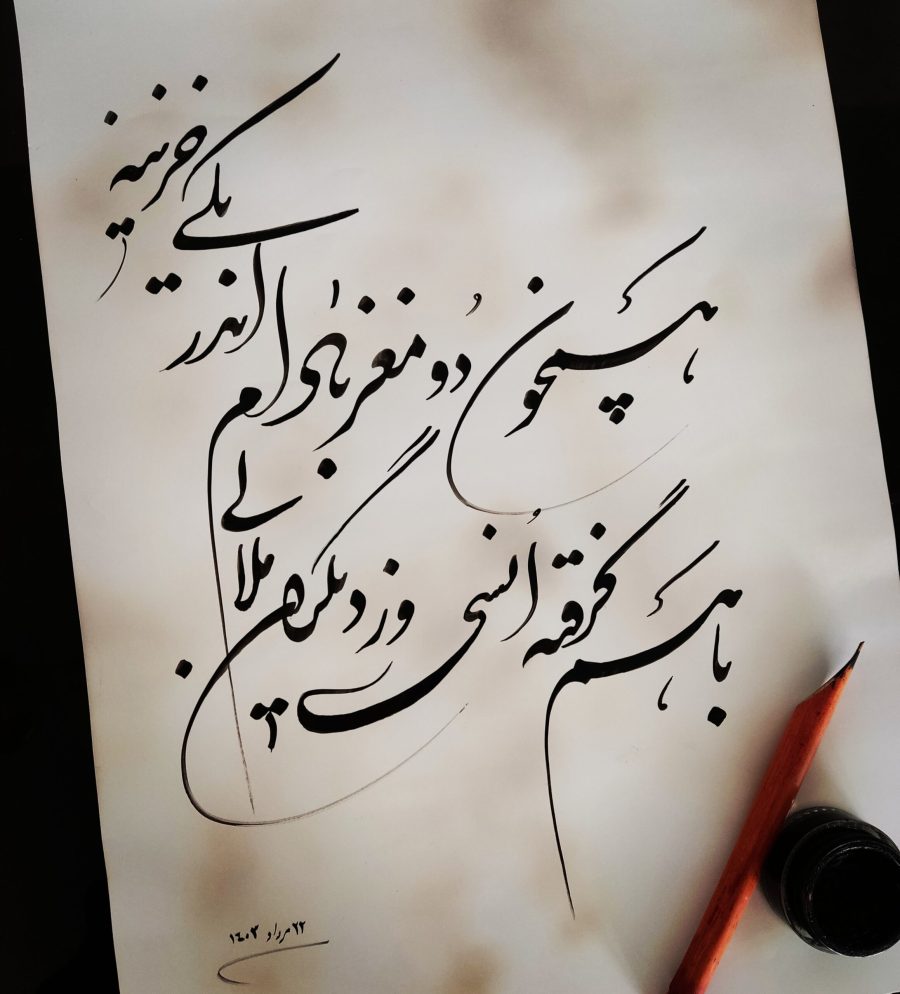 همچون دُو مغز بادام اندر یکی خزینه
با هم گرفته اُنسی وز دیگران ملالی
۲۲ مرداد ۱۴۰۳